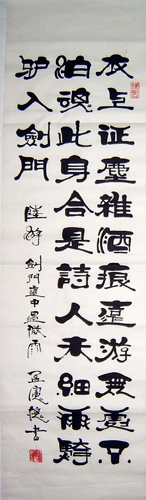 衣上征塵雜酒痕遠游無處不
消魂此身合是詩人未細雨騎
驴入劍門
陸游 劍門道中遇微雨 孟憲德書